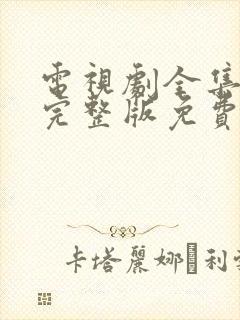 電視劇全集
完整版免費
卡塔麗娜�利